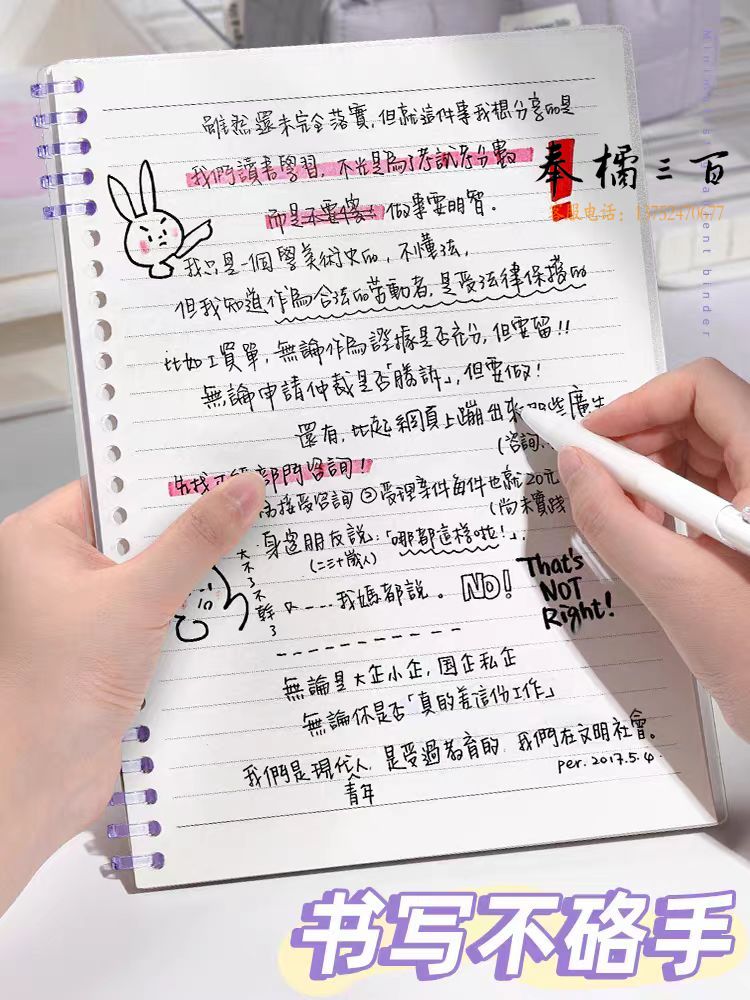 雖然還未完全落實，但就這件事我想分享的是
我們讀書學習，不光是為了考試考分數
而是不要傻！做事要明智。
我只是一個學美術史的，不懂法，
但我知道作為合法的勞動者，是受法律保護的
比如工資單，無論作為證據是否充分，但要留！！
無論申請仲裁是否「勝訴」，但要做！
還有，比起網頁上蹦出來那些廣告
(咨詢
先找 部門咨詢！
接受咨詢 ②受理案件每件也就20元
(尚未實踐
身邊朋友說：「哪都這樣啦！」.
(二三十歲人)
大不了不幹了
又----我媽都說。 NO!
That's
NOT
Right!
無論是大企小企，國企私企
無論你是否「真的差這份工作」
我們是現代人，是受過教育的，我們在文明社會。
青年
per.2017.5.4.
奉橘三百
客服电话：13752470677
书写不硌手